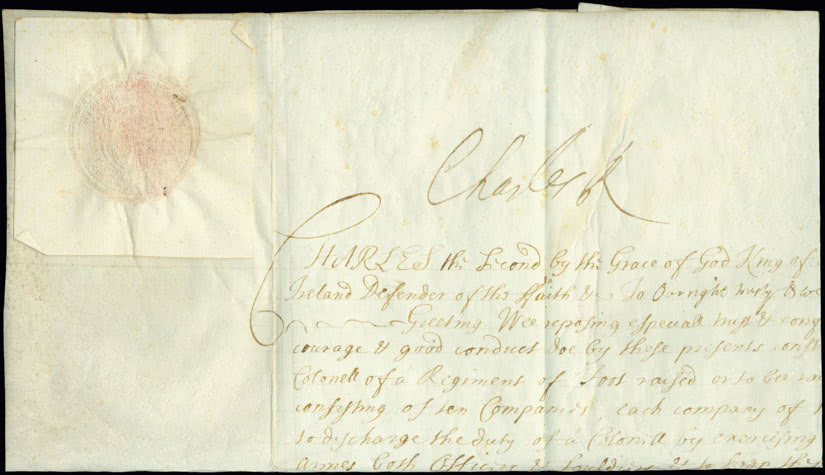 Charles R
CHARLES the Second by the Grace of God King of
Ireland Defender of the Faith &c To Our right trusty & we
Greeting Wee reposing especiall trust & con
courage & good conduct doe by these presents const
Colonell of a Regiment of Foot raised or to bee ra
consisting of ten Companies each company of
to discharge the duty of a Colonell by exerciseing
armes both Officers & Souldiers & to keep the